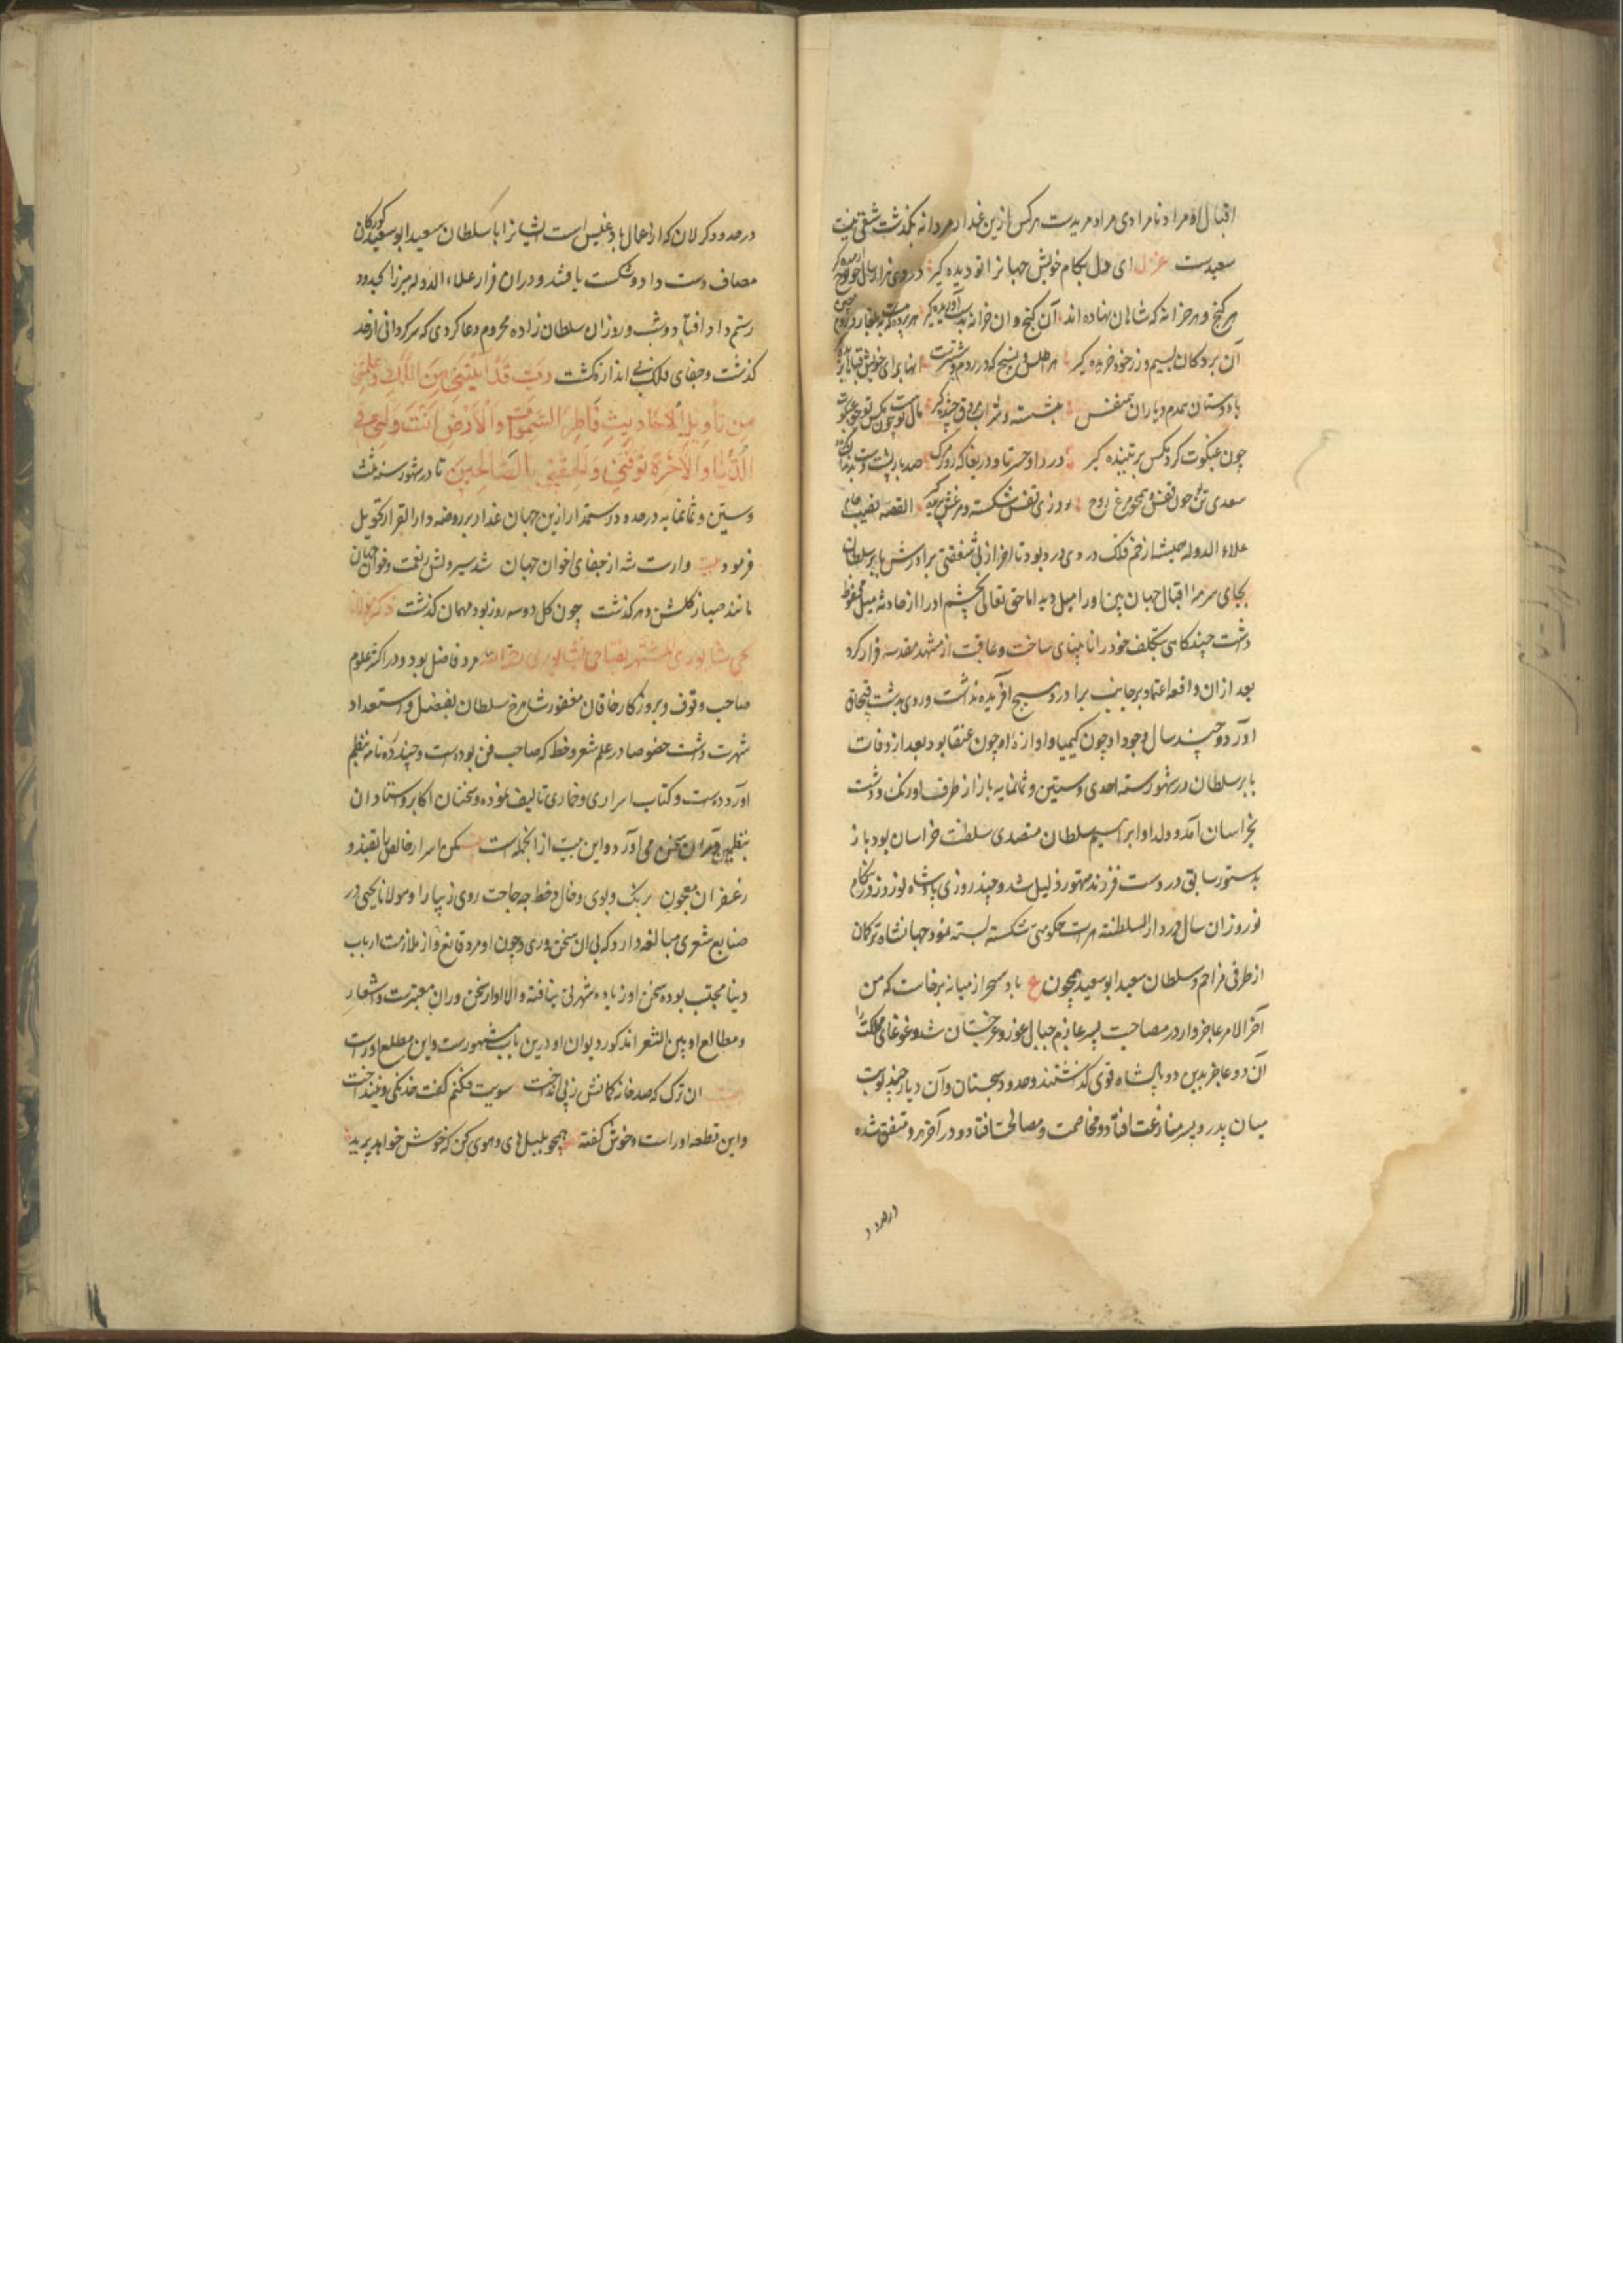 اقبال او مراد نامرادی مراد مریدست هرکس ازین غدار مردانه بگذشت شقی نیست
سعیدست غزل ای دل بکام خویش جهانرا تو دیده گیر در وی هزار سال چو نوح آرمیده گیر
هر گنج و هر خزانه که شاهان نهاده اند آن گنج و آن خزانه بدست آوریده گیر هر برده که هست به بلغار و روم و چین
آن بردکان بسیم و زر خود خریده گیر هر اطلس و نسیج که در روم و ششترست آنها برای خویش قبا بریده گیر
با دوستان همدم و یاران همنفس بنشسته و شراب مروق چشیده گیر مال تو هست چون مگس تو چو عنکبوت
چون عنکبوت گرد مگس بر تنیده گیر دردا و حسرتا و دریغا که روز مرگ صد بار پشت دست بدندان گزیده گیر
سعدی تن تو چون قفس و همچو مرغ روح روزی قفس شکسته و مرغش پریده گیر القصه نصیب
علاء الدوله همیشه از خم فلک دردی درد بود تا آخر از بی شفقتی برادرش بابر سلطان
بجای سرمه اقبال جهان بین او را میل دید اما حق تعالی چشم او را از حادثه میل محفوظ
داشت چندگاهی بتکلف خود را نابینای ساخت و عاقبت از مشهد مقدسه فرار کرد
بعد از آن واقعه اعتماد بر جانب برادر و هیچ آفریده نداشت و روی بدشت قبچاق
آورد و چند سال وجود او چون کیمیا و آوازه او چون عنقا بود بعد از وفات
بابر سلطان در شهور سنه احدی و ستین و ثمانمایه باز از طرف اورنک و دشت
بخراسان آمد و ولد او ابراهیم سلطان متصدی سلطنت خراسان بود باز
بدستور سابق در دست فرزند متهور ذلیل شد و چند روزی پادشاه نوروزی و هنگام
نوروز آن سال در دار السلطنه هرات حکومتی شکسته بسته نمود جهانشاه ترکمان
از طرفی مزاحم و سلطان سعید ابو سعید همچون ع باد سحر از میانه برخاست که من
آخر الامر عاجزوار در مصاحبت پسر عازم جبال غور و غرجستان شد و غوغای مملکت را
آن دو عاجز بدین دو پادشاه قوی گذاشتند و حدود سجستان و آن دیار چند نوبت
میان پدر و پسر منازعت افتاد و مخاصمت و مصالحت افتاد و در آخر هر دو متفق شده
در حدود
در حدود کرلان که از اعمال بادغیس است ایشانرا با سلطان سعید ابو سعید کورکان
مصاف دست داد و شکست یافتند و در آن فرار علاء الدوله میرزا بحدود
رستمدار افتاد و شب و روز آن سلطان زاده محروم دعا کردی که سرگردانی از حد
گذشت و جفای فلک بی اندازه گشت رَبِّ قَدْ آتَيْتَنِي مِنَ الْمُلْكِ وَعَلَّمْتَنِي
مِن تَأْوِيلِ الْأَحَادِيثِ فَاطِرَ السَّمٰوَاتِ وَالْأَرْضِ أَنْتَ وَلِيِّي فِي
الدُّنْيَا وَالْآخِرَةِ تَوَفَّنِي وَأَلْحِقْنِي بِالصَّالِحِينَ تا در شهور سنه ثلث
و ستین و ثمانمایه در حدود رستمدار ازین جهان غدار بروضه دار القرار تحویل
فرمود بیت وارست شه از جفای اخوان جهان شد سیر دلش ز نعمت و خوان جهان
مانند صبا ز گلشن دهر گذشت چون گل دو سه روز بود مهمان گذشت ذکر مولانا
یحیی نیشابوری المشتهر بفتاحی نیشابوری رحمة الله مرد فاضل بود و در اکثر علوم
صاحب وقوف و بروزگار خاقان مغفور شاهرخ سلطان بفضل و استعداد
شهرت داشت خصوصا در علم شعر و خط که صاحب فن بوده ست و چند ده نامه بنظم
آورده ست و کتاب اسراری و خماری تالیف نموده و سخنان اکابر و استادان
بتضمین در آن سخن می آورد و این بیت از آنجمله است بنگ اسرار خالص با لقیذ و
زعفران معجون برنگ و بوی و خال و خط چه حاجت روی زیبا را و مولانا یحیی در
صنایع شعری مبالغه دارد که بی آن سخنوری و چون او مرد قانع و از ملازمت ارباب
دنیا مجتنب بوده سخن او زیاده شهرتی نیافته و الا او از سخنوران معتبرست و اشعار
و مطالع او بین الشعرا مذکور و دیوان او درین باب مشهورست و این مطلع اوراست
بیت آن ترک که صد خانه کمانش ز پی انداخت سویت فکنم گفت خدنگی و نینداخت
و این قطعه اوراست و خوش گفته همچو بلبل های و هوی کن که خوش خواهد پرید